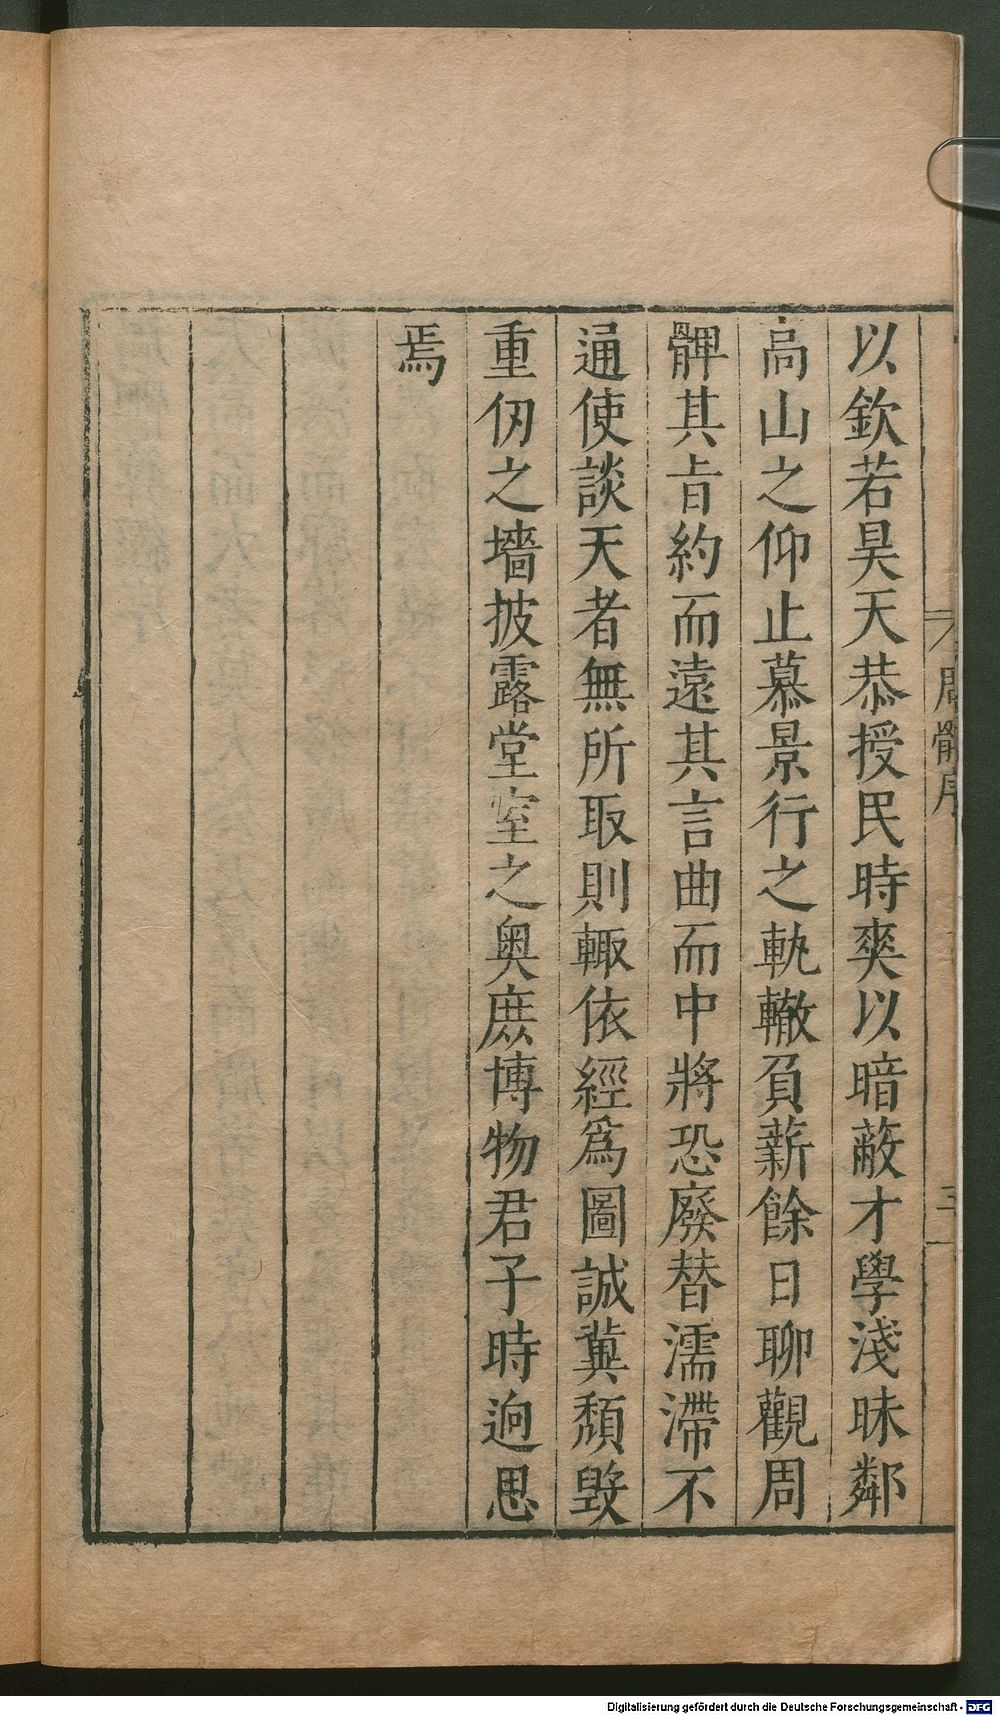 以欽若昊天恭授民時爽以暗蔽才學淺昧鄰
高山之仰止慕景行之軌轍負薪餘日聊觀周
髀其旨約而遠其言曲而中將恐廢替濡滯不
通使談天者無所取則輙依經爲圖誠冀頹毀
重仞之墻披露堂室之奥庶博物君子時迥思
焉
周髀序
三
Digitalisierung gefördert durch die Deutsche Forschungsgemeinschaft - DFG